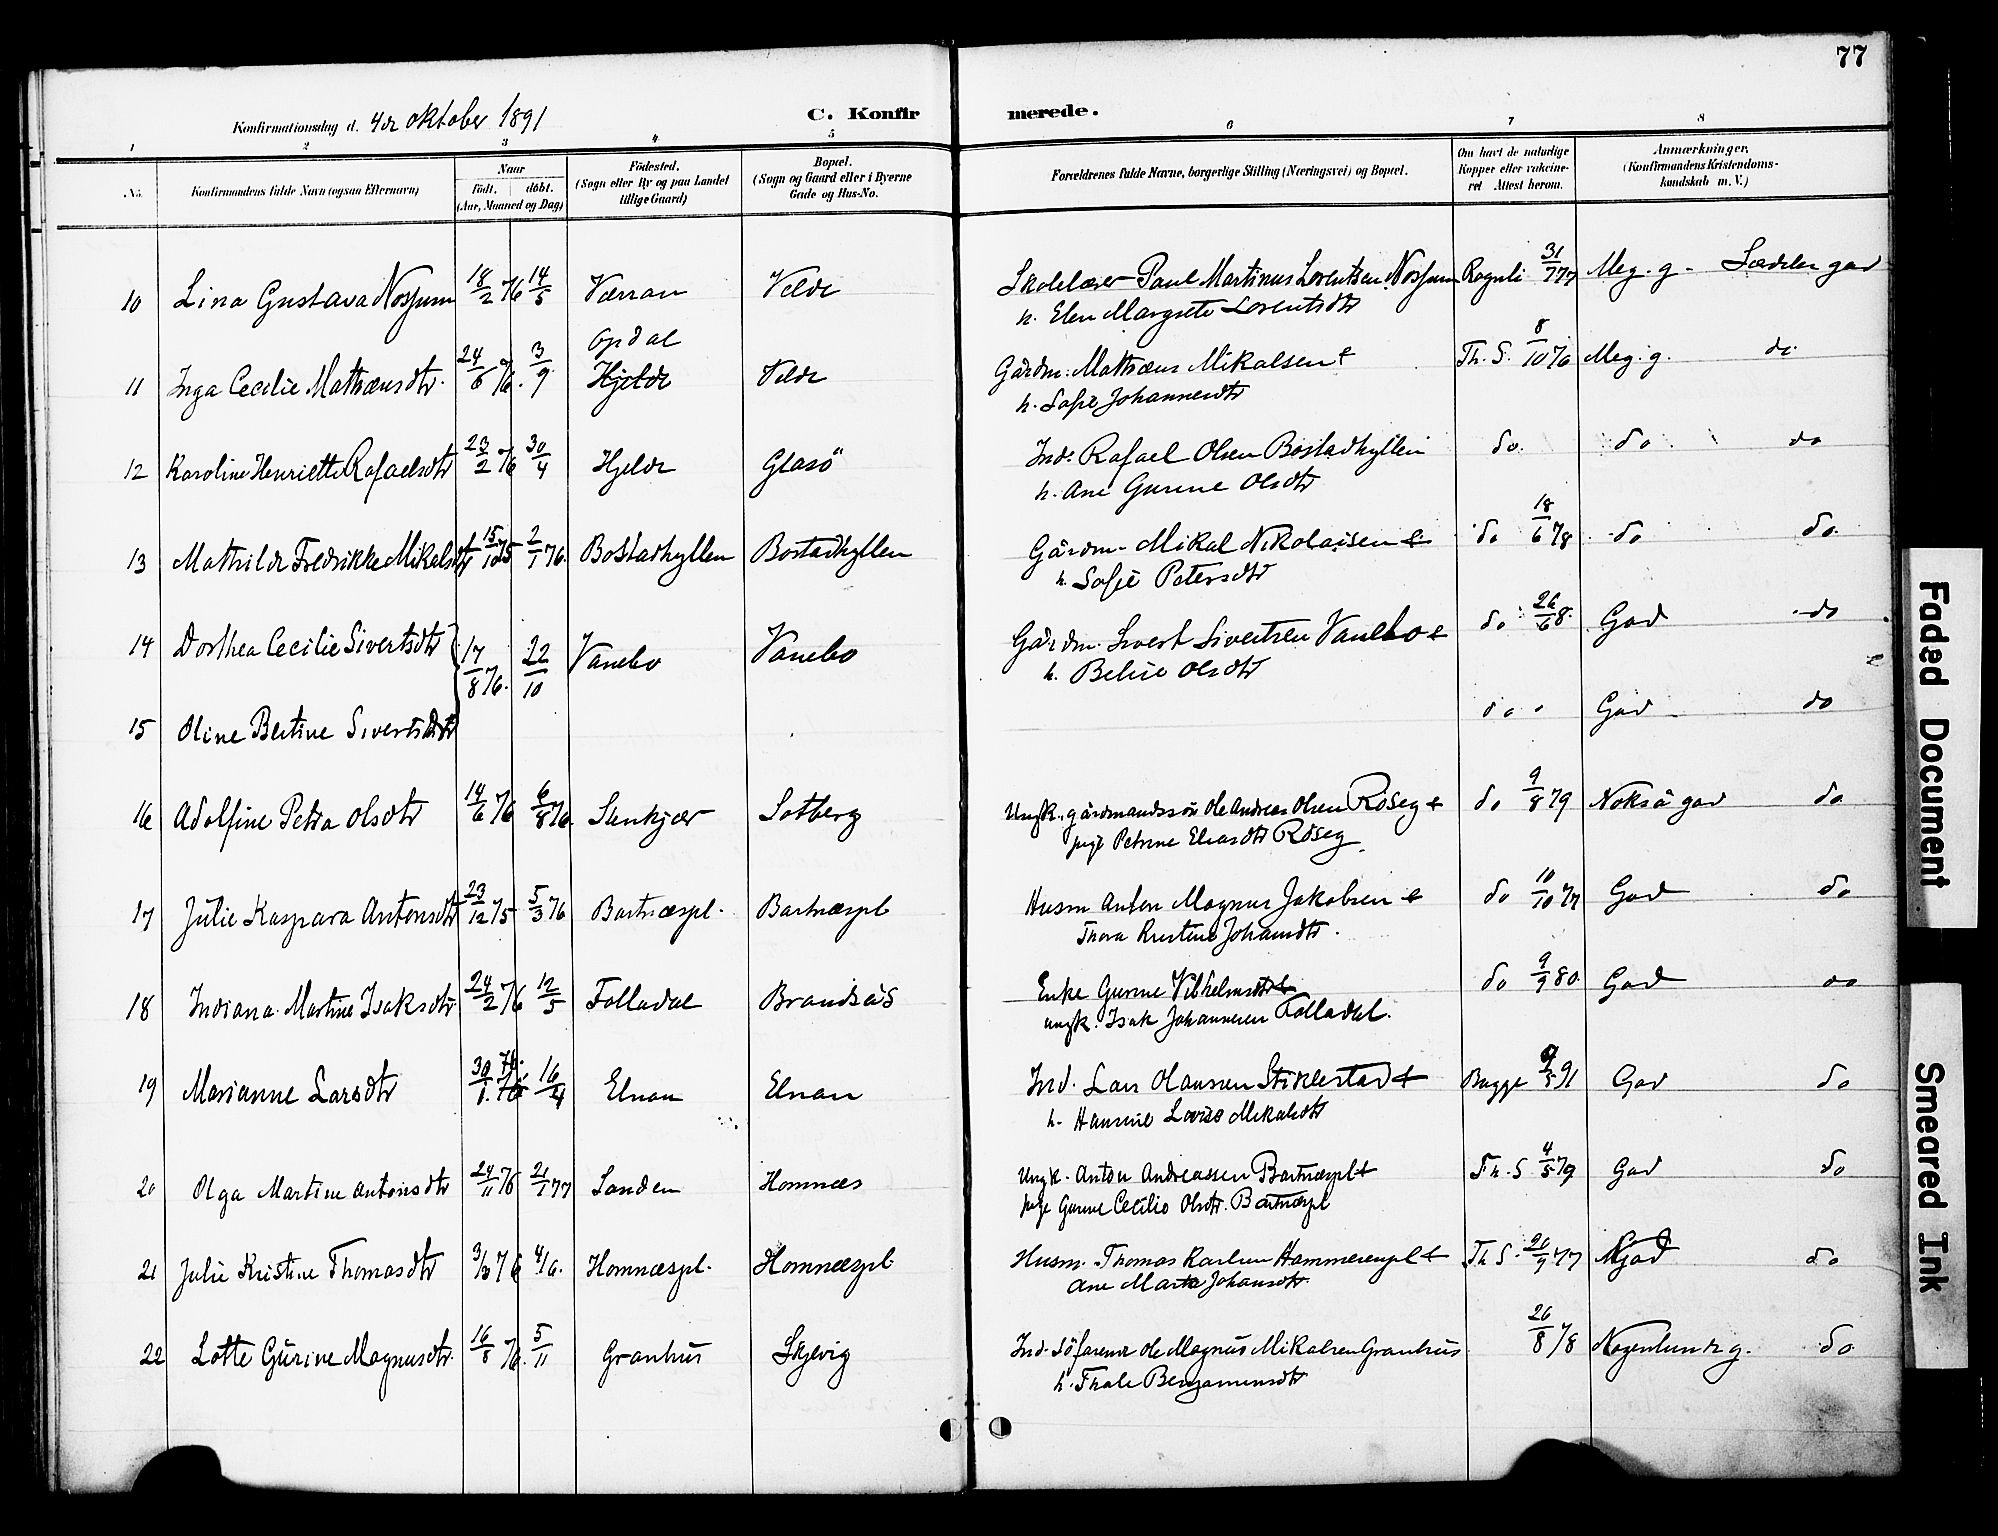 77
Konfirmationsdag d. 4de oktober 1891
C. Konfirmerede.
1 2 3 4 5 6 7 8
No. Konfirmandens fulde Navn (ogsaa Efternavn) Naar født. døbt. (Aar, Maaned og Dag) Fødested. (Sogn eller By og paa Landet tillige Gaard) Bopæl. (Sogn og Gaard eller i Byerne Gade og Hus-No. Forældrenes fulde Navne, borgerlige Stilling (Næringsvei) og Bopæl. Om havt de naturlige Kopper eller vakcineret. Attest herom. Anmærkninger. (Konfirmandens Kristendomskundskab m. V.)
10 Lina Gustava Nossum 18/2 76 14/5 Værran Velde Skolelærer Paul Martinus Lorentsen Nossum Rognli 31/7 77 Meg. g. Sædelær god
h. Elen Margrete Lorentsdtr
11 Inga Cecilie Mathæusdtr. 24/6 76. 3/9 Opdal Hjelde Velde Gårdm. Mathæus Mikalsen & Th. S. 8/10 76 Meg. g. do.
h. Sofie Johannesdtr
12 Karoline Henriette Rafaelsdtr 23/2 76 30/4 Hjelde Glasö Ind. Rafael Olsen Bostadhyllen do. do do
h. Ane Gurine Olsdtr
13 Mathilde Fredrikke Mikalsdtr 15/10 75 2/1 76. Bostadhyllen Bostadhyllen Gårdm. Mikal Nikolaisen & do 18/6 78 do do.
h. Sofie Petersdtr
14 Dorthea Cecilie Sivertsdtr 17/8 76. 22/10 Vanebo Vanebo Gårdm. Sivert Sivertsen Vanebo & do 26/6 8. God do
h. Belise Olsdtr
15 Oline Bertine Sivertsdtr do. God do
16 Adolfine Petra Olsdtr 14/6 76 6/8 76 Stenkjær Sotberg Ungk. gårdmandssön Ole Andreas Olsen Röseg & do 9/8 79 Nokså god do
pige Petrine Eliasdtr Röseg
17 Julie Kaspara Antonsdtr 23/12 75 5/3 76 Bartnæspl. Bartnæspl Husm Anton Magnus Jakobsen & do 10/10 77 God do
Thora Kristine Johansdtr.
18 Indiana Martine Isaksdtr 24/2 76 12/5 Folladal Brandsås Enke Gurine Vilhelmsdtr & do 9/9 80 God do
ungk. Isak Johannesen Folladal.
19 Marianne Larsdtr 30/1 76 16/4 Elnan Elnan Ind. Lars Olaussen Stiklestad & Bugge 9/5 91 God do
h. Hansine Lovise Mikalsdtr
20 Olga Martine Antonsdtr 24/11 76 21/1 77 Sanden Homnæs Ungk. Anton Andreassen Bartnæspl & Th. S 4/5 79 God do
pige Gurine Cecilie Olsdtr. Bartnæspl
21 Julie Kristine Thomasdtr 3/3 76 4/6. Homnæspl. Homnæspl Husm. Thomas Karlsen Hammerengpl & Th S. 20/9 77 Mgod do
Ane Marta Johansdtr
22 Lotte Gurine Magnusdtr. 16/8 76. 5/11 Granhus Skjevig Ind. Söfarende Ole Magnus Mikalsen Granhus 26/8 78 Nogenlunde g. do
h. Thale Benjaminsdtr
Faded Document
Smeared Ink